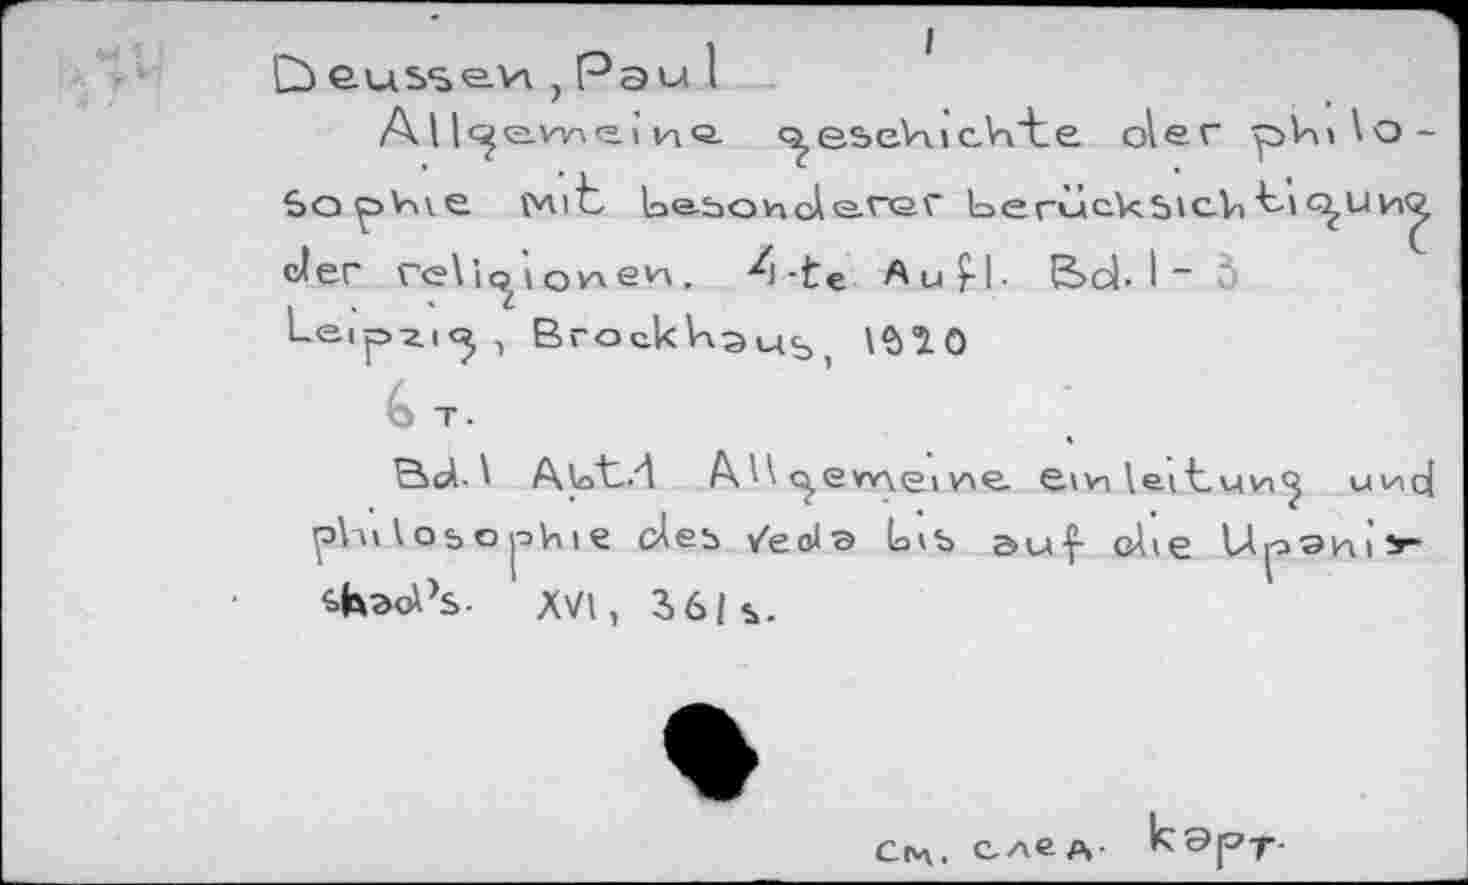 Deussen, Paul
Allgemeine geschichte der philo-
sophie mit besonderer berücksichtigung
der religionen. 4-te Aufl. Bd. 1-
Leipzig, Brockhaus, 1920
6 т.
Bd. 1 Abt. 1 Allgemeine einleitung und
philosophie des Veda bis auf die Upani-
shad's. XVI, 361 s.
см. след. карт.